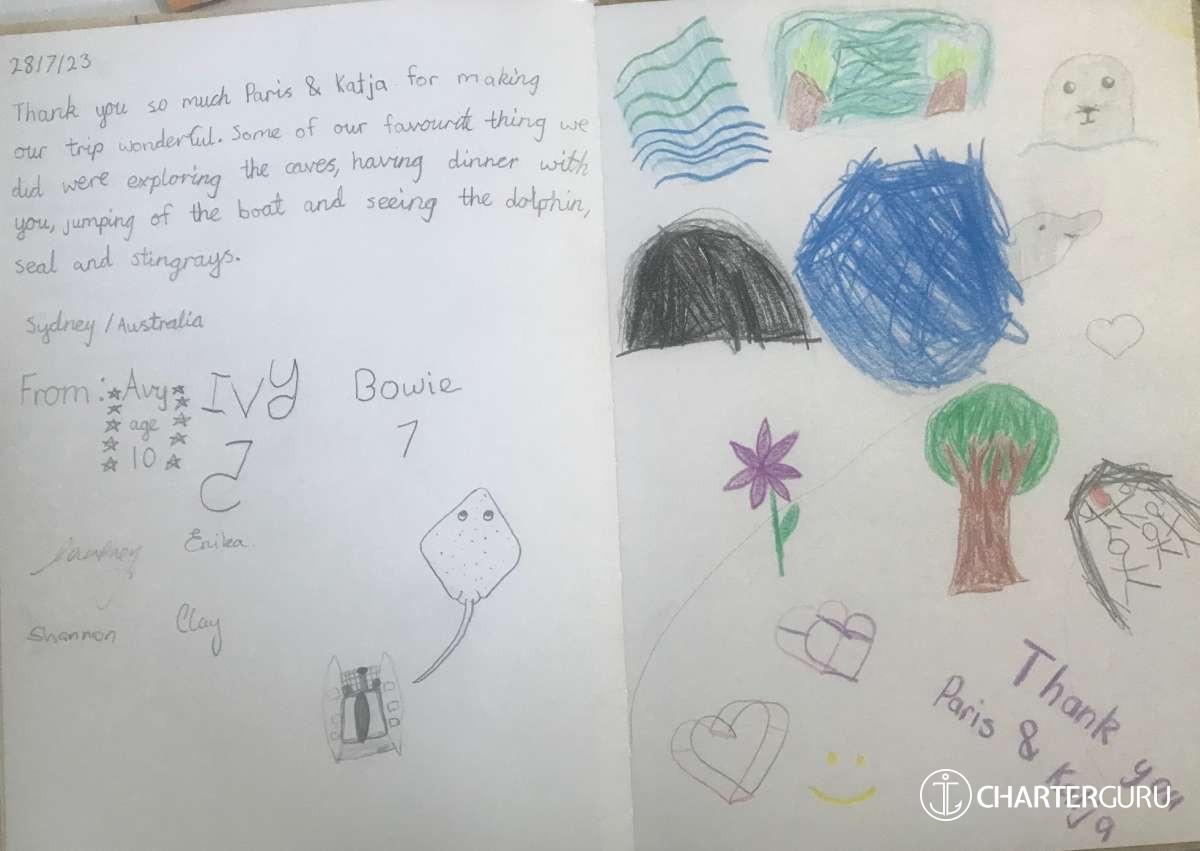 28/7/23
Thank you so much Paris & Katja for making
our trip wonderful. Some of our favourite thing we
did were exploring the caves, having dinner with
you, jumping of the boat and seeing the dolphin,
seal and stingrays.
Sydney / Australia
From: Avy Ivy Bowie
age
10 7 7
Erika
Shannon Clay
Thank you
Paris & Katja
CHARTERGURU